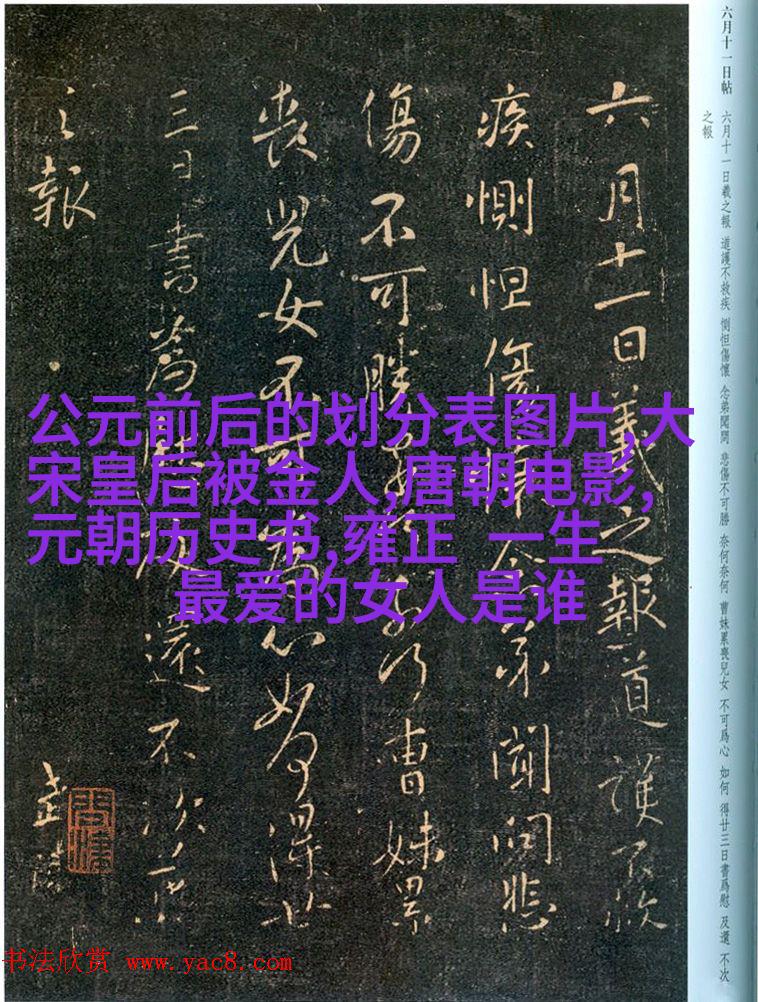 六月十一日帖 六月十一日羲之報 道護不救疾 惻怛傷懷 念弟聞問 悲傷不可勝 奈何奈何 曹妹累喪兒女 不可爲心 如何 得廿三日書爲慰 及還 不次
之報
六月十一日羲之報道護不救
疾惻怛傷懷念弟聞問悲
傷不可勝奈何奈何曹妹累
喪兒女不可爲心如何得廿
三日書爲慰及還不次羲
之報
公元前后的划分表图片,大
宋皇后被金人,唐朝电影,
元朝历史书,雍正 一生
最爱的女人是谁
书法欣赏 www.yac8.com